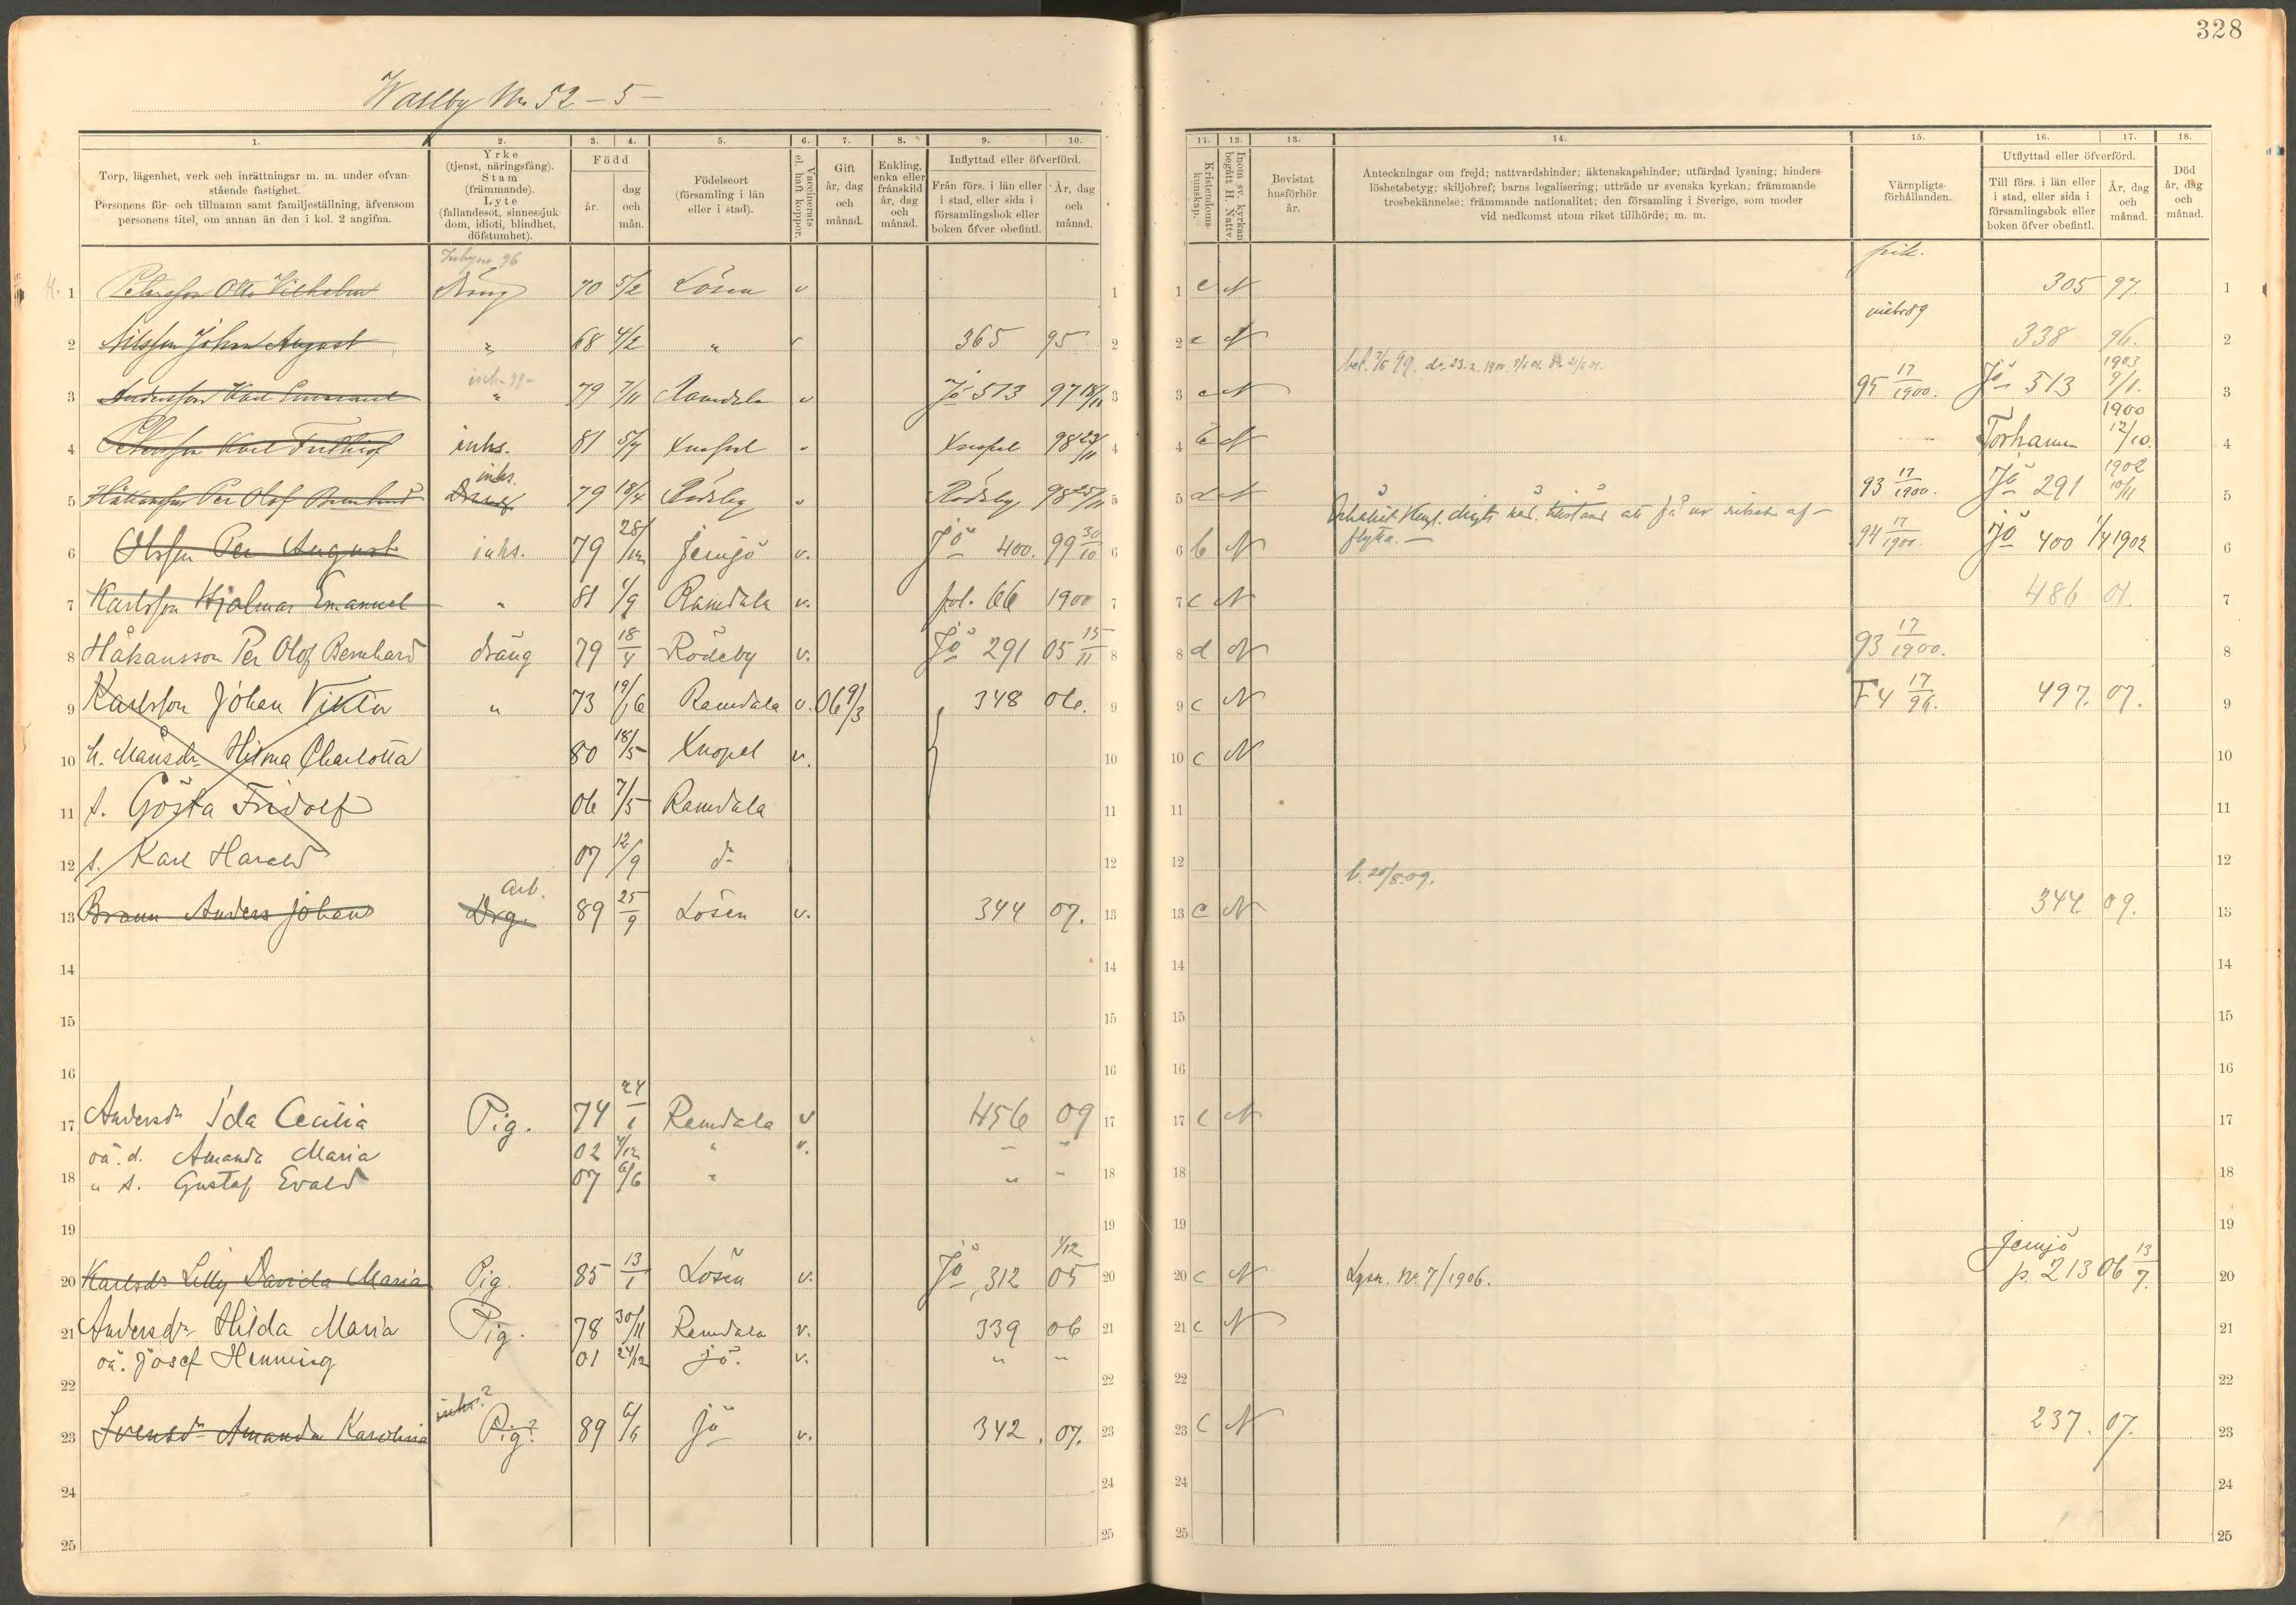 328
Wallby No 52 - 5 -
1. 2. 3. 4. 5. 6. 7. 8. 9. 10. 11. 12. 13. 14. 15. 16. 17. 18.
Torp, lägenhet, verk och inrättningar m. m. under ofvanstående fastighet.
Personens för- och tillnamn samt familjeställning, äfvensom personens titel, om annan än den i kol. 2 angifna.
Yrke (tjenst, näringsfång). Stam (främmande). Lyte (fallandesot, sinnessjukdom, idioti, blindhet, döfstumhet).
Född år. dag och mån.
Födelseort (församling i län eller i stad).
Vaccinerats el. haft koppor.
Gift år, dag och månad.
Enkling, enka eller frånskild år, dag och månad.
Inflyttad eller öfverförd.
Från förs. i län eller i stad, eller sida i församlingsbok eller boken öfver obefintl.
År, dag och månad.
Kristendomskunskap.
Inom sv. kyrkan begått H. Nattv.
Bevistat husförhör år.
Anteckningar om frejd; nattvardshinder; äktenskapshinder; utfärdad lysning; hinderslöshetsbetyg; skiljobref; barns legalisering; utträde ur svenska kyrkan; främmande trosbekännelse; främmande nationalitet; den församling i Sverige, som moder vid nedkomst utom riket tillhörde; m. m.
Värnpligtsförhållanden.
Utflyttad eller öfverförd.
Till förs. i län eller i stad, eller sida i församlingsbok eller boken öfver obefintl.
År, dag och månad.
Död år, dag och månad.
1 Petersson Otto Vilhelm Dräng 70 5/2 Lösen v 1 c N 305 97.
2 Nilsson Johan August " 68 4/2 " v 365 95 2 c N 338 96.
3 Andersson Karl Emanuel " 79 7/11 Ramdala v Jö 513 97 18/11 3 c N 95 17/1900. Jö 513 1903 9/1.
4 Petersson Karl Fridthiof inhs. 81 5/7 Knopel Knopel 98 4 N Torhamn 1900 12/10.
5 Håkansson Per Olof Bernhard inhs. Dräng 79 18/4 Rödeby v Rödeby 98 25/11 5 d N 93 17/1900. Jö 291 1902 10/11
6 Olsson Per August inhs. 79 28/12 Jemjö v. Jö 400. 99 30/10 6 b N flytta. — 94 17/1900. Jö 400 1/4 1902
7 Karlsson Hjalmar Emanuel " 81 4/9 Ramdala v. fol. 66 1900 7 c N 486 01.
8 Håkansson Per Olof Bernhard dräng 79 18/4 Rödeby v. Jö 291 05 15/11 8 d N 93 17/1900.
9 Karlsson Johan Viktor " 73 19/6 Ramdala v. 06 9/3 348 06. 9 c N F4 17/96. 497. 07.
10 h. Månsdr Hilma Charlotta 80 18/5 Knopel v. 10 c N
11 s. Gösta Fridolf 06 7/5 Ramdala 11
12 s. Karl Harald 07 12/9 do 12
b. 20/8.09.
13 Braun Anders Johan Arb. Drg. 89 25/9 Lösen v. 344 07. 13 c N 344. 09.
14
15
16
17 Andersdr Ida Cecilia Pig. 74 24/1 Ramdala v 456 09 17 c N
oä. d. Amanda Maria 02 4/12 " v. " "
18 " s. Gustaf Evald 07 6/6 " " " 18
19
20 Karlsdr Lilly Davida Maria Pig. 85 13/1 Lösen v. Jö 312 1/12 05 20 c N Lysn. No 7/1906. Jemjö p. 213 06 13/7.
21 Andersdr Hilda Maria Pig. 78 30/11 Ramdala v. 339 06 21 c N
oä. Josef Henning 01 24/12 jö. v. " "
22
23 Svensdr Amanda Karolina inhs? Pig? 89 6/6 jö v. 342. 07. 23 c N 237. 07.
24
25